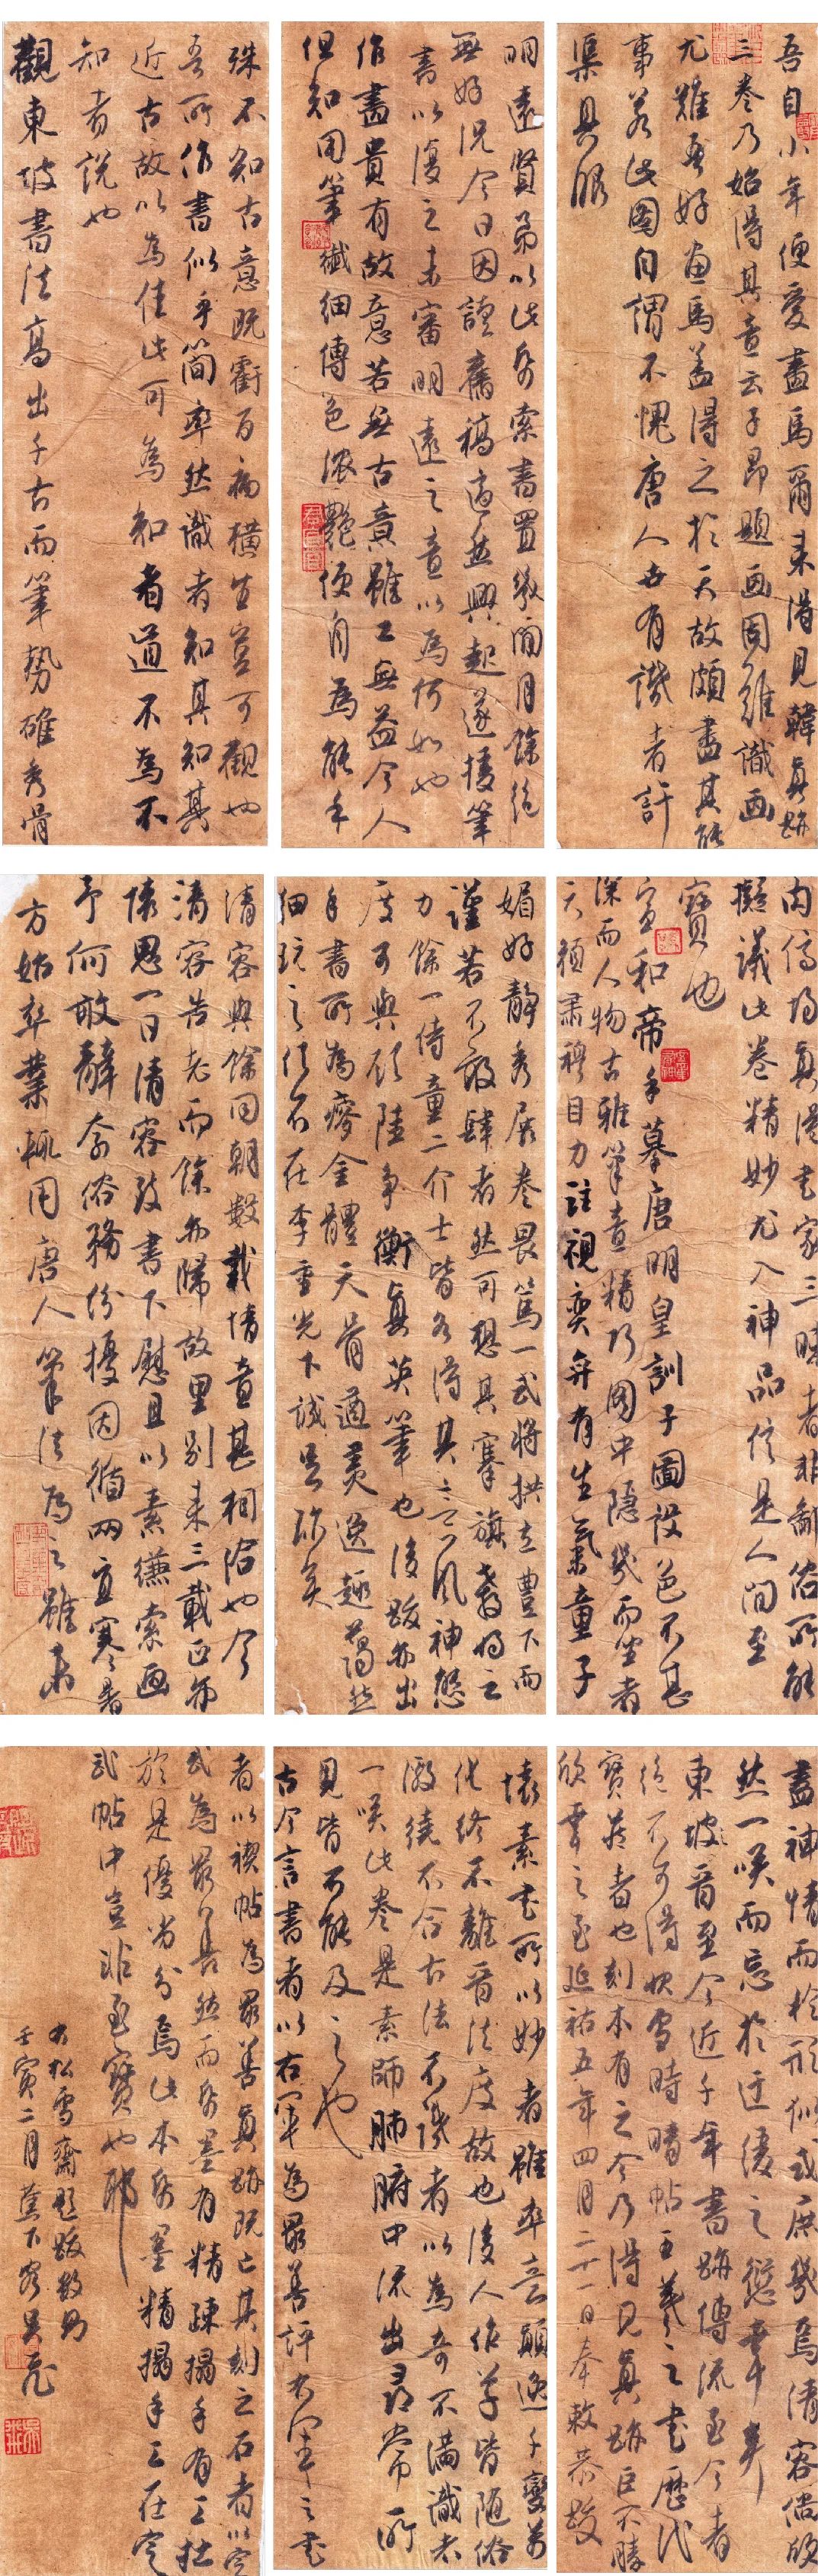 吾自小年便愛畫馬爾來得見韓真跡
三卷乃始得其意云子昂題画固難識画
尤難吾好画馬蓋得之於天故頗盡其能
事若此圖自謂不愧唐人世有識者許
渠具眼
明遠賢弟以此紙索書置幾間月餘絕
無好況今日因讀舊稿適然興起遂援筆
書以復之未審明遠之意以為何如也
作畫貴有故意若無古意雖工無益今人
但知用筆纖細傳色濃艷便自為能手
殊不知古意既虧百病橫生豈可觀也
吾所作書似乎簡率然識者知其知其
近古故以為佳此可為知者道不為不
知者說也
觀東坡書法高出千古而筆勢確秀骨
内傳得真老家三昧者非鄙俗所能
擬議此卷精妙尤入神品信是人間至
寶也
宣和帝手摹唐明皇訓子圖設色不甚
深而人物古雅筆意精巧圖中隱幾而坐者
天顏肅穆目力註視奕奕有生氣童子
媚好靜秀展卷畏篤一武將拱立豊下而
謹若不敢肆者然可想其搴旗將之
力餘一侍童二介士皆各得其意風神態
度可與顧陸爭衡真英筆也後跋亦出
手書所為瘦金體天骨遒美逸趣藹然
細玩之信不在李重光下誠足珍矣
清容與餘同朝數載情意甚相洽也今
清容告老而餘亦歸故里別來三載正爾
懷思一日清容致書下慰且以素縑索画
予何敢辭奈俗務紛擾因循兩宜寒暑
方始卒業輒用唐人筆法為之雖未
盡神情而於形似或庶幾焉清容倘欣
然一咲而忘於迂緩之愆幸矣
東坡晉至今近千年書跡傳流至今者
絕不可得快雪時晴帖王羲之書歷代
寶藏者也刻本有之今乃得見真跡臣不勝
欣幸之至延祐五年四月二十一日奉敕恭跋
懷素書所以妙者雖率意顛逸千變萬
化終不離晉法度故也後人作草皆隨俗
激繞不合古法不識者以為奇不滿識者
一咲此卷是素師肺腑中流出尋常所
見皆不能及之也
古今言書者以右軍為最善評右軍之書
者以禊帖為最善真跡既亡其刻之石者以定
武為最善然而紙墨有精疎搨手有工拙
於是優劣分焉此本紙墨精搨手工在定
武帖中豈非至寶也耶
右松雪齋題跋數則
壬寅二月燕下客吳飛